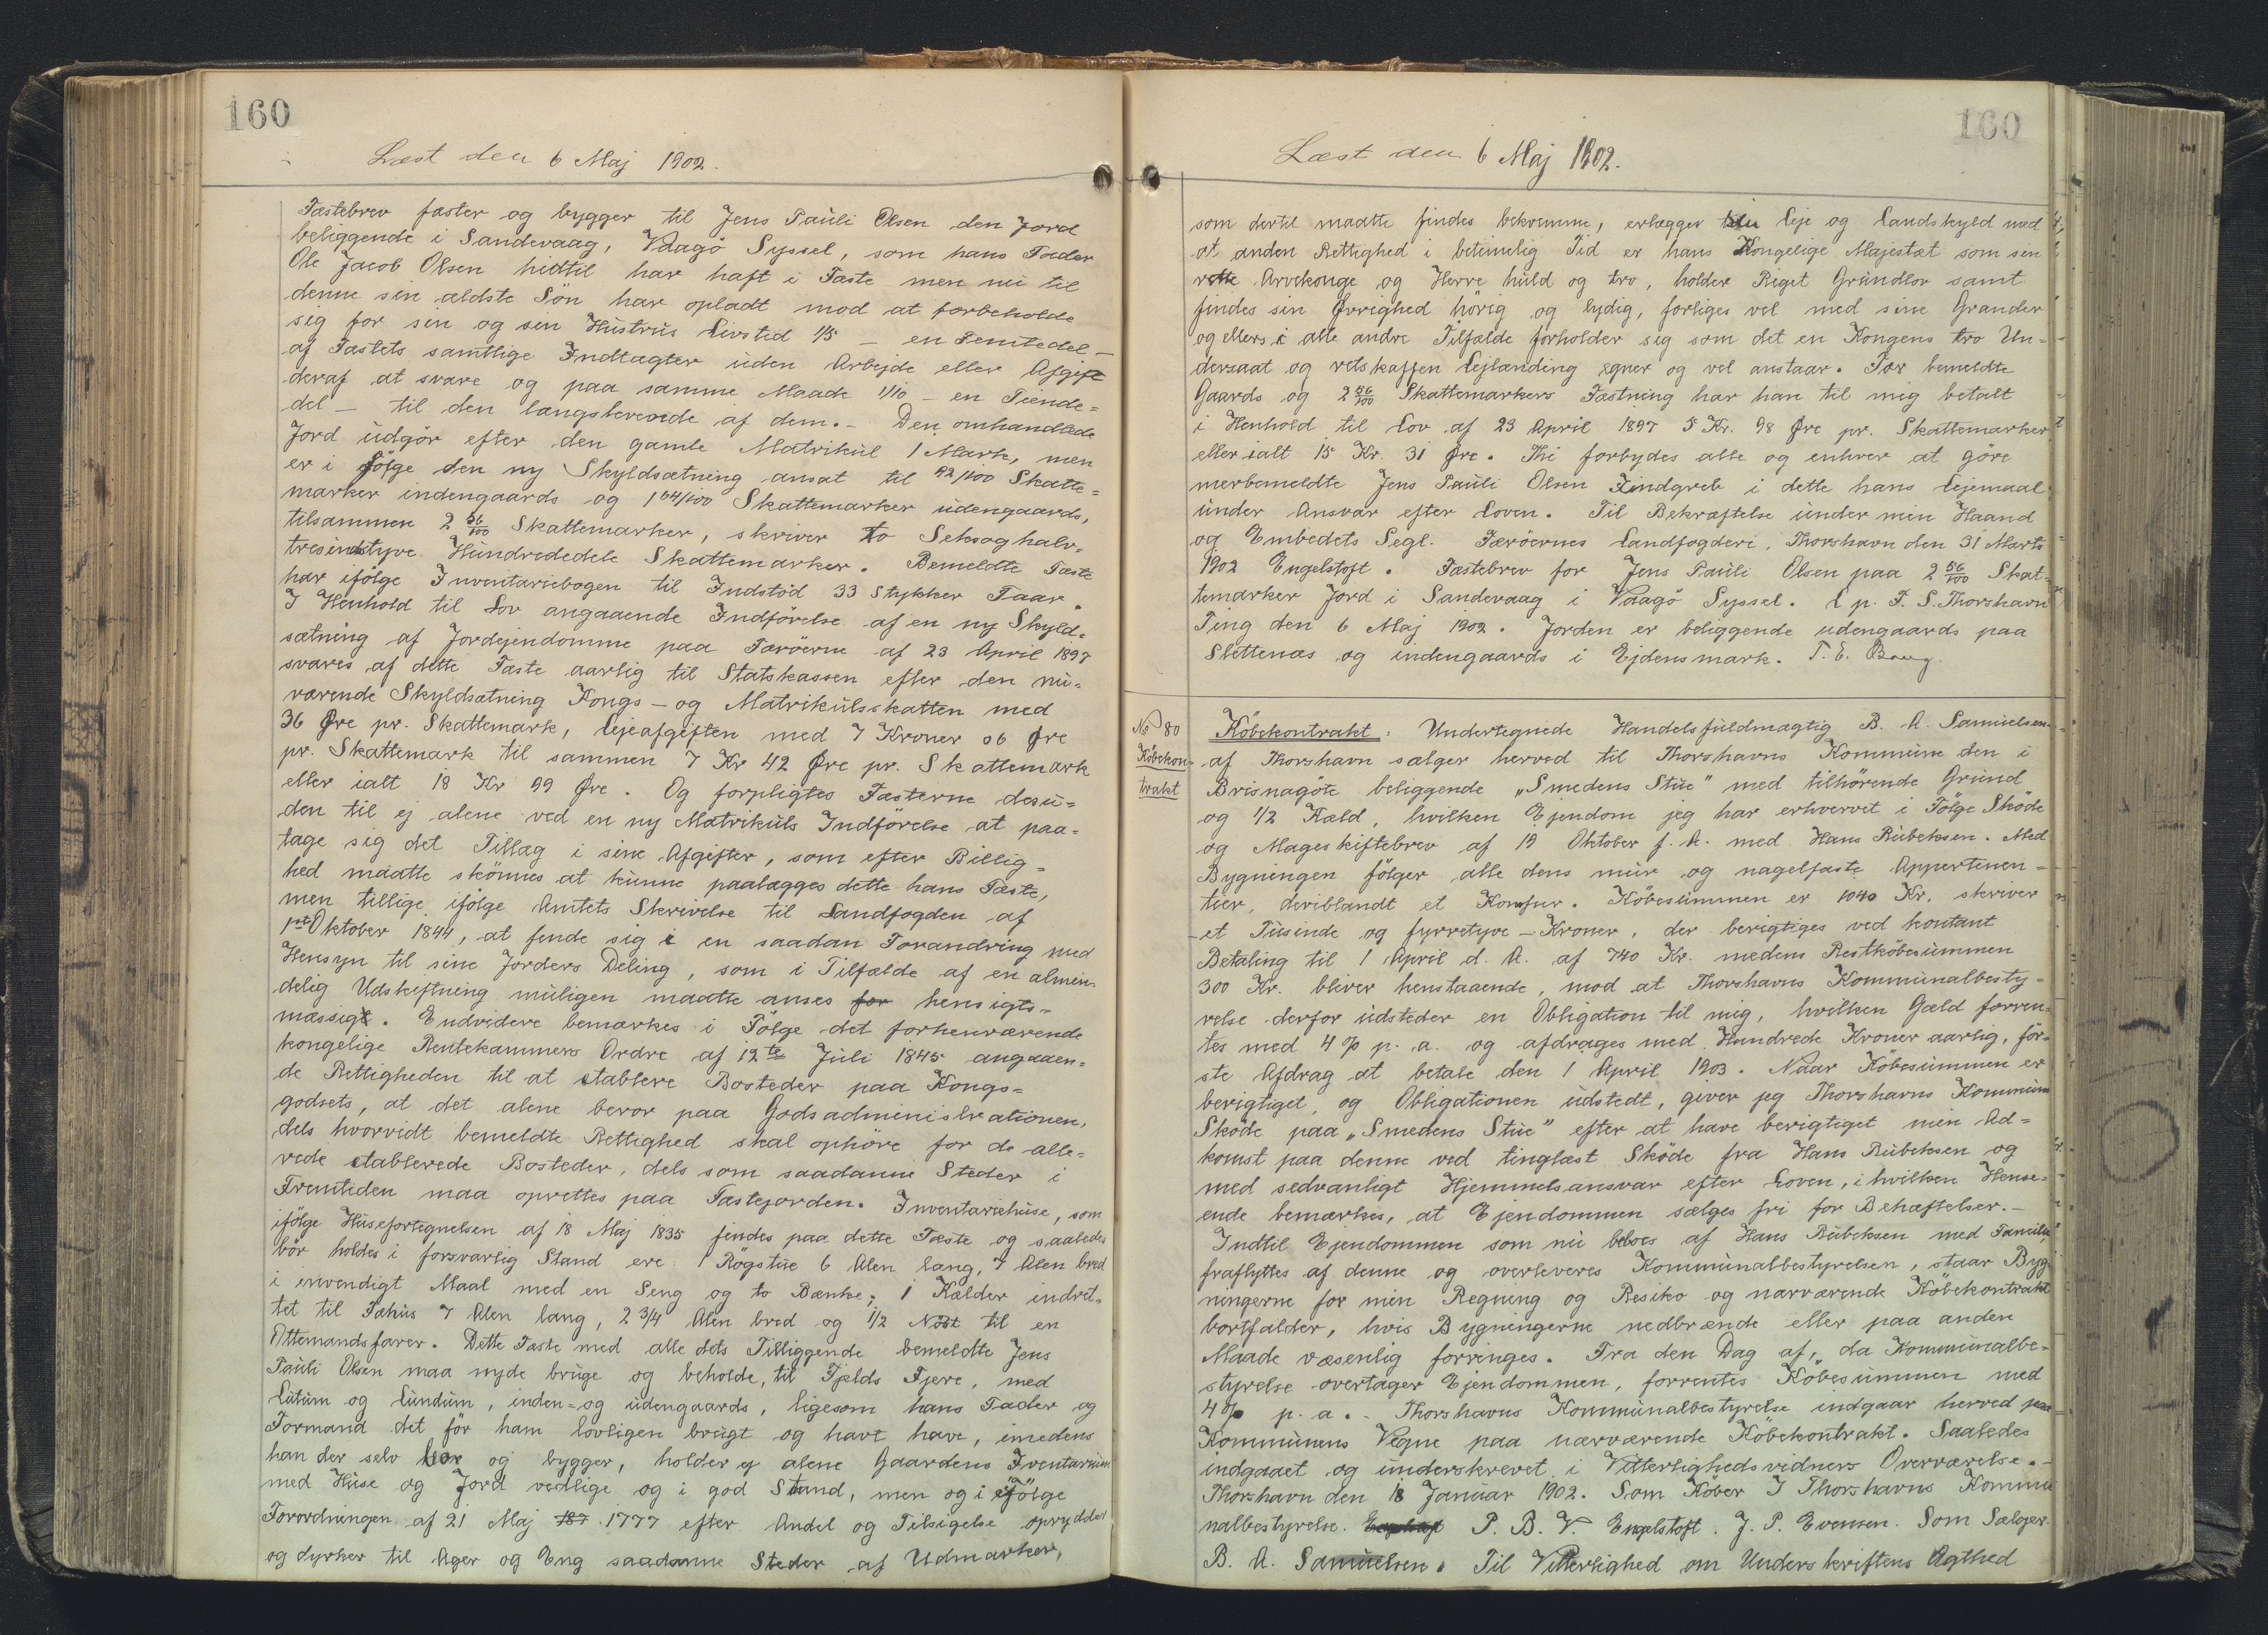 160
Læst den 6 Maj 1902.
Fæstebrev fæster og bygger til Jens Pauli Olsen den Jord
beliggende i Sandevaag, Vaagö Syssel, som hans Fader
Ole Jacob Olsen hidtil har haft i Fæste men nu til
denne sin ældste Sön har opladt mod at forbeholde
sig for sin og sin Hustrus Livstid 1/5 - en Femtedel -
af Fæstets samtlige Indtægter uden Arbejde eller Afgift
deraf at svare og paa samme Maade 1/10 - en Tiende=
del - til den længstlevende af dem. - Den omhandlede
Jord udgör efter den gamle Matrikul 1 Mark, men
er i Fölge den ny Skyldsætning ansat til 92/100 Skatte=
marker indengaards og 1 64/100 Skattemarker udengaards,
tilsammen 2 56/100 Skattemarker, skriver to Seksoghalv=
tresindstyve Hundrededele Skattemarker. Bemeldte Fæste
har ifölge Inventariebogen til Indstöd 33 Stykker Faar.
I Henhold til Lov angaaende Indförelse af en ny Skyld=
sætning af Jordejendomme paa Færöerne af 23 April 1897
svares af dette Fæste aarlig til Statskassen efter den nu=
værende Skyldsætning Kongs- og Matrikulsskatten med
36 Øre pr. Skattemark, Lejeafgiften med 7 Kroner 06 Øre
pr. Skattemark til sammen 7 Kr 42 Øre pr. Skattemark
eller ialt 18 Kr 99 Øre. Og forpligtes Fæsterne desu=
den til ej alene ved en ny Matrikuls Indförelse at paa=
tage sig det Tillæg i sine Afgifter, som efter Billig=
hed maatte skönnes at kunne paalægges dette hans Fæste,
men tillige ifölge Amtets Skrivelse til Landfogden af
1ste Oktober 1844, at finde sig i en saadan Forandring med
Hensyn til sine Jorders Deling, som i Tilfælde af en almin=
delig Udskiftning muligen maatte anses for hensigts=
mæssigt. Endvidere bemærkes i Fölge det forhenværende
kongelige Rentekammers Ordre af 12te Juli 1845 angaaen=
de Rettigheden til at etablere Bosteder paa Kongs=
godsets, at det alene beror paa Godsadministrationen,
dels hvorvidt bemeldte Rettighed skal ophöre for de alle=
rede etablerede Bosteder, dels som saadanne Steder i
Fremtiden maa oprettes paa Fæstejorden. Inventariehuse, som
ifölge Husefortegnelsen af 18 Maj 1835 findes paa dette Fæste og saaledes
bör holdes i forsvarlig Stand ere 1 Rögstue 6 Alen lang, 7 Alen bred
i invendigt Maal med en Seng og to Bænke; 1 Kælder indret=
tet til Fæhus 7 Alen lang, 2 3/4 Alen bred og 1/2 Nöst til en
Ottemandsfarer. Dette Fæste med alle dets Tilliggende bemeldte Jens
Pauli Olsen maa nyde bruge og beholde, til Fjelds Fjere, med
Lutum og Lundum, inden= og udengaards, ligesom hans Fader og
Formand det för ham lovligen brugt og havt have, imedens
han der selv bor og bygger, holder ej alene Gaardens Inventarium
med Huse og Jord vedlige og i god Stand, men og i fölge
Forordningen af 21 Maj 187 1777 efter Andel og Tilsigelse oprydder
og dyrker til Ager og Eng saadanne Steder af Udmarken,
160
Læst den 6 Maj 1902.
som dertil maatte findes bekvemme, erlægger sin Leje og Landskyld med
al anden Rettighed i betimelig Tid er hans Kongelige Majestæt som sin
rette Arvekonge og Herre huld og tro, holder Riget Grundlov samt
findes sin Øvrighed hörig og lydig, forliges vel med sine Grander
og ellers i alle andre Tilfælde forholder sig som det en Kongens tro Un=
dersaat og retskaffen Lejlænding egner og vel anstaar. For bemeldte
Gaards og 2 56/100 Skattemarkers Fæstning har han til mig betalt
i Henhold til Lov af 23 April 1897 5 Kr. 98 Øre pr. Skattemarker
eller ialt 15 Kr. 31 Øre. Thi forbydes alle og enhver at göre
merbemeldte Jens Pauli Olsen Indgreb i dette hans Lejemaal
under Ansvar efter Loven. Til Bekræftelse under min Haand
og Embedets Segl. Færöernes Landfogderi, Thorshavn den 31 Marts
1902 Engelstoft. Fæstebrev for Jens Pauli Olsen paa 2 56/100 Skat=
temarker Jord i Sandevaag i Vaagö Syssel. L p. F. S. Thorshavn
Ting den 6 Maj 1902. Jorden er beliggende udengaards paa
Slettenæs og indengaards i Ejdensmark. T. E. Bang.
No 80
Köbekon=
trakt
Köbekontrakt: Undertegnede Handelsfuldmægtig B. A. Samuelsen
af Thorshavn sælger herved til Thorshavns Kommune den i
Brisnagöte beliggende "Smedens Stue" med tilhörende Grund
og 1/2 Kæld, hvilken Ejendom jeg har erhvervet i Fölge Sköde
og Mageskiftebrev af 19 Oktober f. A. med Hans Rubeksen. Med
Bygningen fölger alle dens mur og nagelfaste Appertinen=
tier, deriblandt et Komfur. Köbesummen er 1040 Kr. skriver
- et Tusende og fyrretyve - Kroner, der berigtiges ved kontant
Betaling til 1 April d. A. af 740 Kr. medens Restköbesummen
300 Kr. bliver henstaaende, mod at Thorshavns Kommunalbesty=
relse derfor udsteder en Obligation til mig, hvilken Gæld forren=
tes med 4 % p. a. og afdrages med Hundrede Kroner aarlig, för=
ste Afdrag at betale den 1 April 1903. Naar Köbesummen er
berigtiget, og Obligationen udstedt, giver jeg Thorshavns Kommune
Sköde paa "Smedens Stue" efter at have berigtiget min Ad=
komst paa denne ved tinglæst Sköde fra Hans Rubeksen og
med sedvanligt Hjemmelsansvar efter Loven, i hvilken Hense=
ende bemærkes, at Ejendommen sælges fri for Behæftelser. -
Indtil Ejendommen som nu beboes af Hans Rubeksen med Familie,
fraflyttes af denne og overleveres Kommunalbestyrelsen, staar Byg=
ningerne for min Regning og Resiko og nærværende Köbekontrakt
bortfalder, hvis Bygningerne nedbrænde eller paa anden
Maade væsenlig forringes. Fra den Dag af, da Kommunalbe=
styrelse overtager Ejendommen, forrentes Köbesummen med
4% p. a. - Thorshavns Kommunalbestyrelse indgaar herved paa
Kommunens Vegne paa nærværende Köbekontrakt. Saaledes
indgaaet og underskrevet i Vitterlighedsvidners Overværelse. -
Thorshavn den 18 Januar 1902. Som Köber I Thorshavns Kommu
nalbestyrelse. P. B. V. Engelstoft. J. P. Evensen. Som Sælger
B. A. Samuelsen. Til Vitterlighed om Underskriftens Ægthed